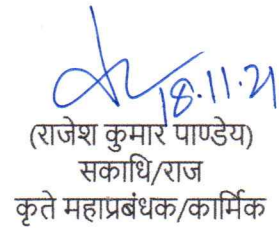 18.11.21
(राजेश कुमार पाण्डेय)
सकाधि/राज
कृते महाप्रबंधक/कार्मिक